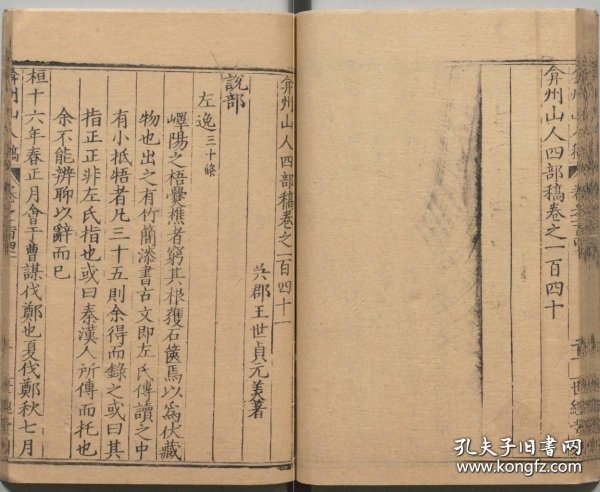 弇州山人四部稿卷之一百四十
弇州山人四部稿卷之一百四十一
吳郡王世貞元美著
說部
左逸三十條
嶧陽之梧爨樵者窮其根獲石篋焉以為伏藏
物也出之有竹簡漆書古文即左氏傳讀之中
有小抵梧者凡三十五則余得而錄之或曰其
指正正非左氏指也或曰秦漢人所傳而托也
余不能辨聊以辭而已
桓十六年春正月會于曹謀伐鄭也夏伐鄭秋七月
孔夫子旧书网
www.kongfz.com